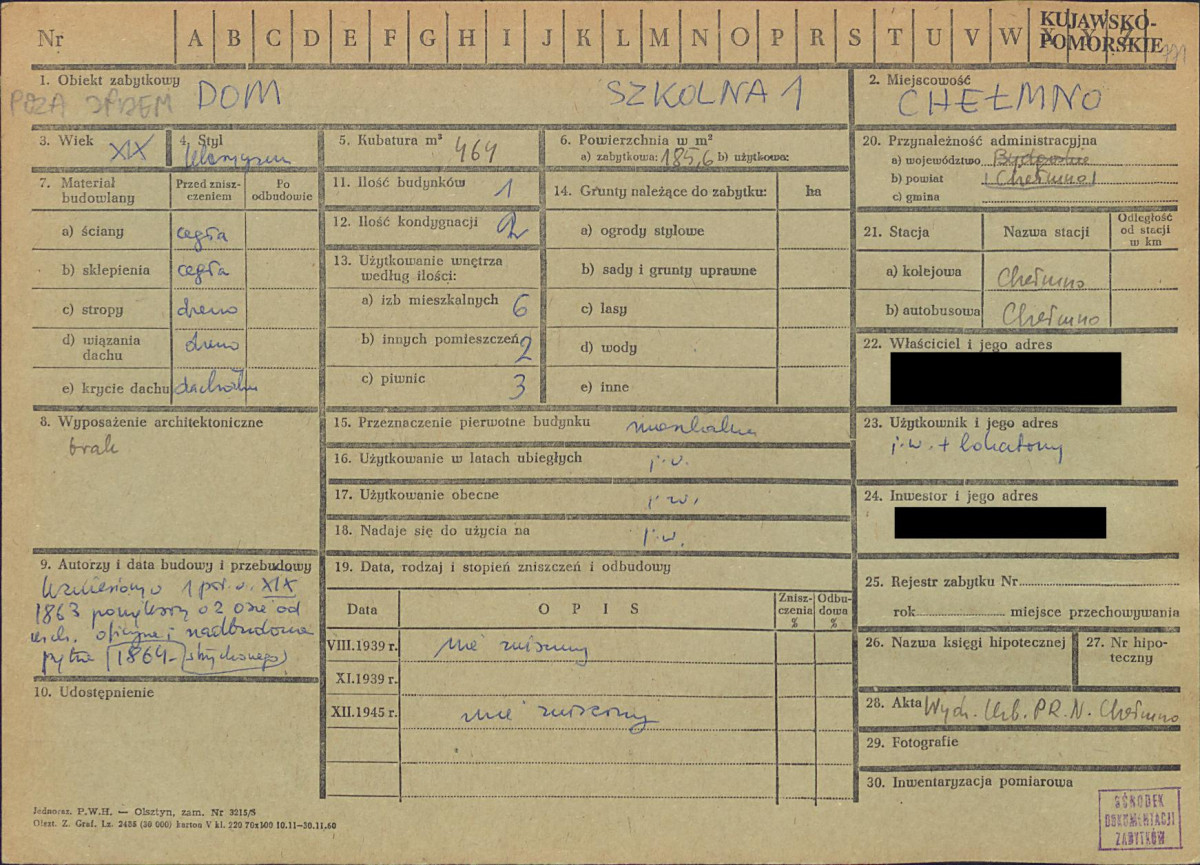 Nr A B C D E F G H I J K L M N O P R S T U V W X Y Z
KUJAWSKO-
POMORSKIE
1. Obiekt zabytkowy
DOM SZKOLNA 1
2. Miejscowość
CHEŁMNO
3. Wiek XIX
4. Styl klasycyzm
5. Kubatura m³ 464
6. Powierzchnia w m²
a) zabytkowa: 185,6 b) użytkowa:
20. Przynależność administracyjna
a) województwo Bydgoskie
b) powiat (Chełmno)
c) gmina
7. Materiał budowlany
Przed zniszczeniem
Po odbudowie
a) ściany cegła
b) sklepienia cegła
c) stropy drewno
d) wiązania dachu drewno
e) krycie dachu dachówka
11. Ilość budynków 1
12. Ilość kondygnacji 2
13. Użytkowanie wnętrza
według ilości:
a) izb mieszkalnych 6
b) innych pomieszczeń 2
c) piwnic 3
14. Grunty należące do zabytku: ha
a) ogrody stylowe
b) sady i grunty uprawne
c) lasy
d) wody
e) inne
21. Stacja Nazwa stacji Odległość od stacji w km
a) kolejowa Chełmno
b) autobusowa Chełmno
22. Właściciel i jego adres
8. Wyposażenie architektoniczne
brak
15. Przeznaczenie pierwotne budynku mieszkalny
16. Użytkowanie w latach ubiegłych j.w.
17. Użytkowanie obecne j.w.
18. Nadaje się do użycia na j.w.
23. Użytkownik i jego adres
j.w. + lokatorzy
24. Inwestor i jego adres
9. Autorzy i data budowy i przebudowy
Wzniesiony o 1 poł. w. XIX
1863 powiększony o 2 osie od
wsch. oficynę i nadbudowa
piętra (1864-strychowego)
10. Udostępnienie
19. Data, rodzaj i stopień zniszczeń i odbudowy
Data OPIS Zniszczenia % Odbudowa %
VIII.1939 r. nie zniszczony
XI.1939 r.
XII.1945 r. nie zniszczony
25. Rejestr zabytku Nr
rok miejsce przechowywania
26. Nazwa księgi hipotecznej
27. Nr hipoteczny
28. Akta Wydz. Urb. P.R.N. Chełmno
29. Fotografie
30. Inwentaryzacja pomiarowa
Jednoraz. P.W.H. — Olsztyn, zam. Nr 3215/S
Olszt. Z. Graf. Lz. 2486 (30 000) karton V kl. 220 70x100 10.11—30.11.60
OŚRODEK
DOKUMENTACJI
ZABYTKÓW